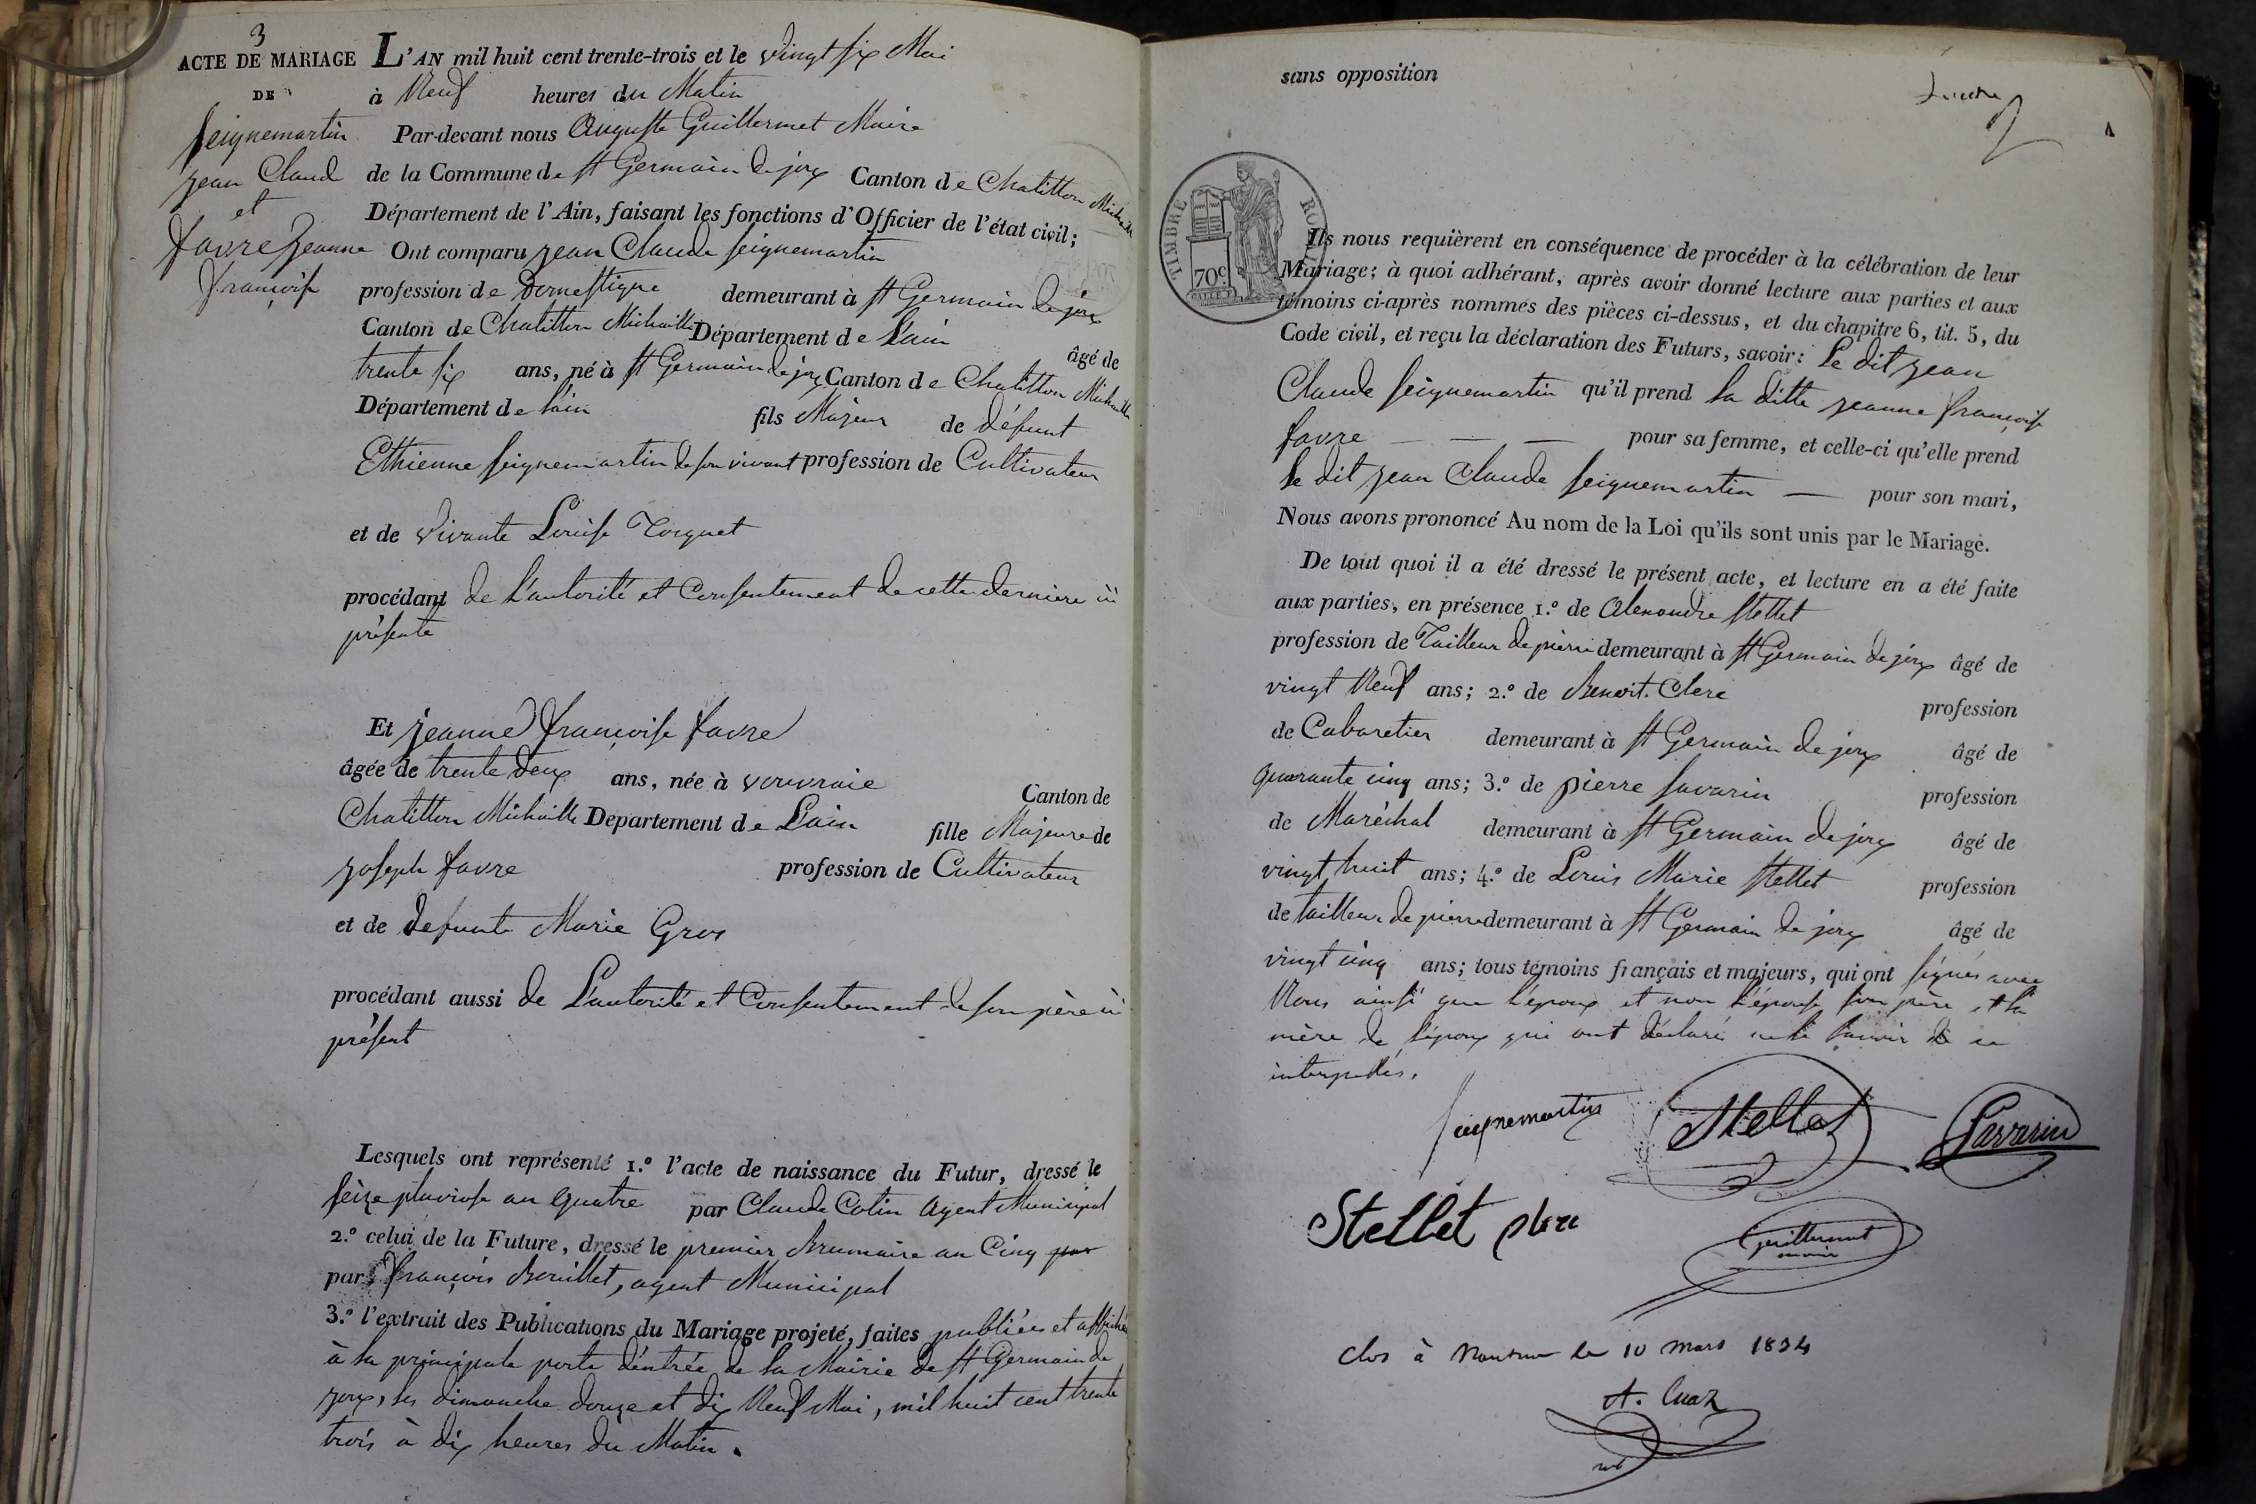 3
ACTE DE MARIAGE
DE
Seignemartin
jean Claud
et
favre Jeanne
françoise
L'AN mil huit cent trente-trois et le vingt six Mai
à Neuf heures du Matin
Par-devant nous Auguste Guillermet Maire
de la Commune de st Germain de joux Canton de Chatillon Michaille
Département de l'Ain, faisant les fonctions d'Officier de l'état civil;
Ont comparu jean Claude seignemartin
profession de Domestique demeurant à st Germain de joux
Canton de Chatillon Michaille Département de L'ain âgé de
trente six ans, né à st Germain de joux Canton de Chatillon Michaille
Département de L'ain fils Majeur de défunt
Ethienne seignemartin de son vivant profession de Cultivateur
et de vivante Louise
procédant de L'autorité et Consentement de cette derniere ici
présente
Et jeanne françoise favre
âgée de trente deux ans, née à vouvraie Canton de
Chatillon Michaille Departement de L'ain fille Majeure de
joseph favre profession de Cultivateur
et de defunte Marie Gros
procédant aussi de L'autorité et Consentement de son père ici
présent
Lesquels ont représenté 1.º l'acte de naissance du Futur, dressé le
seize pluviose an quatre par Claude Colin agent Municipal
2.º celui de la Future, dressé le premier Brumaire an Cinq par
par françois Bouillet, agent Municipal
3.º l'extrait des Publications du Mariage projeté, faites publiées et affichées
à la principale porte d'entrée de la Mairie de st Germain de
joux, les dimanche douze et dix Neuf Mai, mil huit cent trente
trois à dix heures du Matin.
sans opposition
TIMBRE ROYAL
70c.
Ils nous requièrent en conséquence de procéder à la célébration de leur
Mariage; à quoi adhérant, après avoir donné lecture aux parties et aux
témoins ci-après nommés des pièces ci-dessus, et du chapitre 6, tit. 5, du
Code civil, et reçu la déclaration des Futurs, savoir: Le dit jean
Claude seignemartin qu'il prend La ditte jeanne françoise
favre — — — pour sa femme, et celle-ci qu'elle prend
le dit jean Claude seignemartin — pour son mari,
Nous avons prononcé Au nom de la Loi qu'ils sont unis par le Mariage.
De tout quoi il a été dressé le présent acte, et lecture en a été faite
aux parties, en présence 1.º de Alexandre stellet
profession de Tailleur de pierre demeurant à st Germain de joux âgé de
vingt Neuf ans; 2.º de Benoit Clerc profession
de Cabaretier demeurant à st Germain de joux âgé de
quarante cinq ans; 3.º de pierre savarin profession
de Maréchal demeurant à st Germain de joux âgé de
vingt huit ans; 4.º de Louis Marie stellet profession
de tailleur de pierre demeurant à st Germain de joux âgé de
vingt cinq ans; tous témoins français et majeurs, qui ont signés avec
Nous ainsi que L'époux et non L'épouse son père et la
mère de L'époux qui ont déclaré ne le savoir de ce
interpellés.
seignemartin Stellet Savarin
Stellet clerc Guillermet
maire
Clos à Nantua le 10 mars 1834